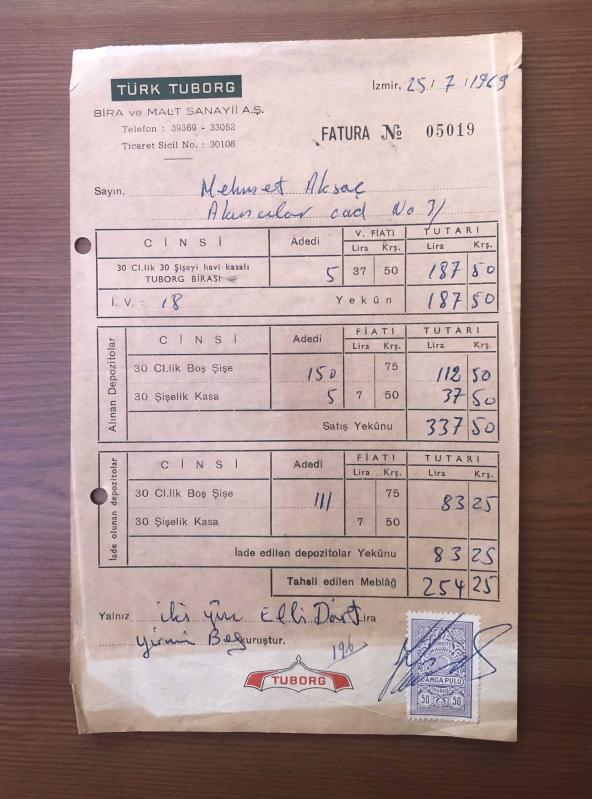 TÜRK TUBORG
BİRA ve MALT SANAYİİ A.Ş.
Telefon : 39369 - 33052
Ticaret Sicil No. : 30108
İzmir, 25/7/1969
FATURA № 05019
Sayın, Mehmet Aksaç
cad No 31
CİNSİ Adedi V. FİATI TUTARI
Lira Krş. Lira Krş.
30 Cl.lik 30 Şişeyi havi kasalı TUBORG BİRASI 5 37 50 187 50
İ. V. : 18 Yekûn 187 50
Alınan Depozitolar
CİNSİ Adedi FİATI TUTARI
Lira Krş. Lira Krş.
30 Cl.lik Boş Şişe 150 75 112 50
30 Şişelik Kasa 5 7 50 37 50
Satış Yekûnu 337 50
İade olunan depozitolar
CİNSİ Adedi FİATI TUTARI
Lira Krş. Lira Krş.
30 Cl.lik Boş Şişe 111 75 83 25
30 Şişelik Kasa 7 50
İade edilen depozitolar Yekûnu 83 25
Tahsil edilen Meblâğ 254 25
Yalnız iki yüz Elli Dört Lira
yirmi Beş kuruştur.
196
TUBORG
DAMGA PULU
50 KURUŞ 50